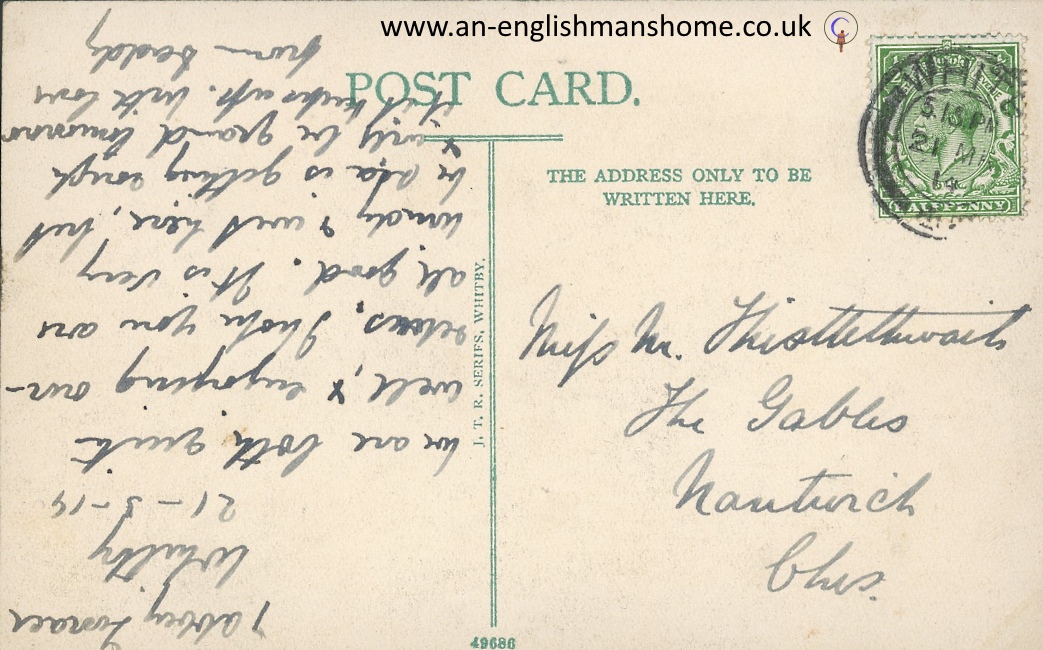 www.an-englishmanshome.co.uk
POST CARD.
THE ADDRESS ONLY TO BE
WRITTEN HERE.
WHIT
5 15 PM
21 MR
14
HALFPENNY
Miss M. Thistlethwaite
The Gables
Nantwich
Ches.
J. T. R. SERIES, WHITBY.
49686
7 Abbey Terrace
Whitby
21-3-14
We are both quite
well, & enjoying our-
selves. I hope you are
all good. It is very
windy & wet here, but
the sea is getting rough
& will be grand tomorrow
if it keeps up. With love
from Daddy